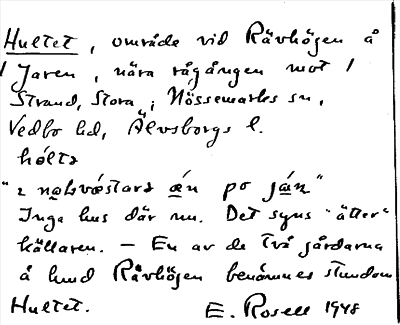 Hultet, område vid Rävhögen å
/ Jaren, nära rågången mot /
Strand, Stora, i Nössemarks sn,
Vedbo hd, Älvsborgs l.
hólta
"ı nǫlvǿstarə ǽn po já̱n"
Inga hus där nu. Det syns "ätter"
källaren. – En av de två gårdarna
å hmd Rävhögen benämnes stundom
Hultet. E. Rosell 1948